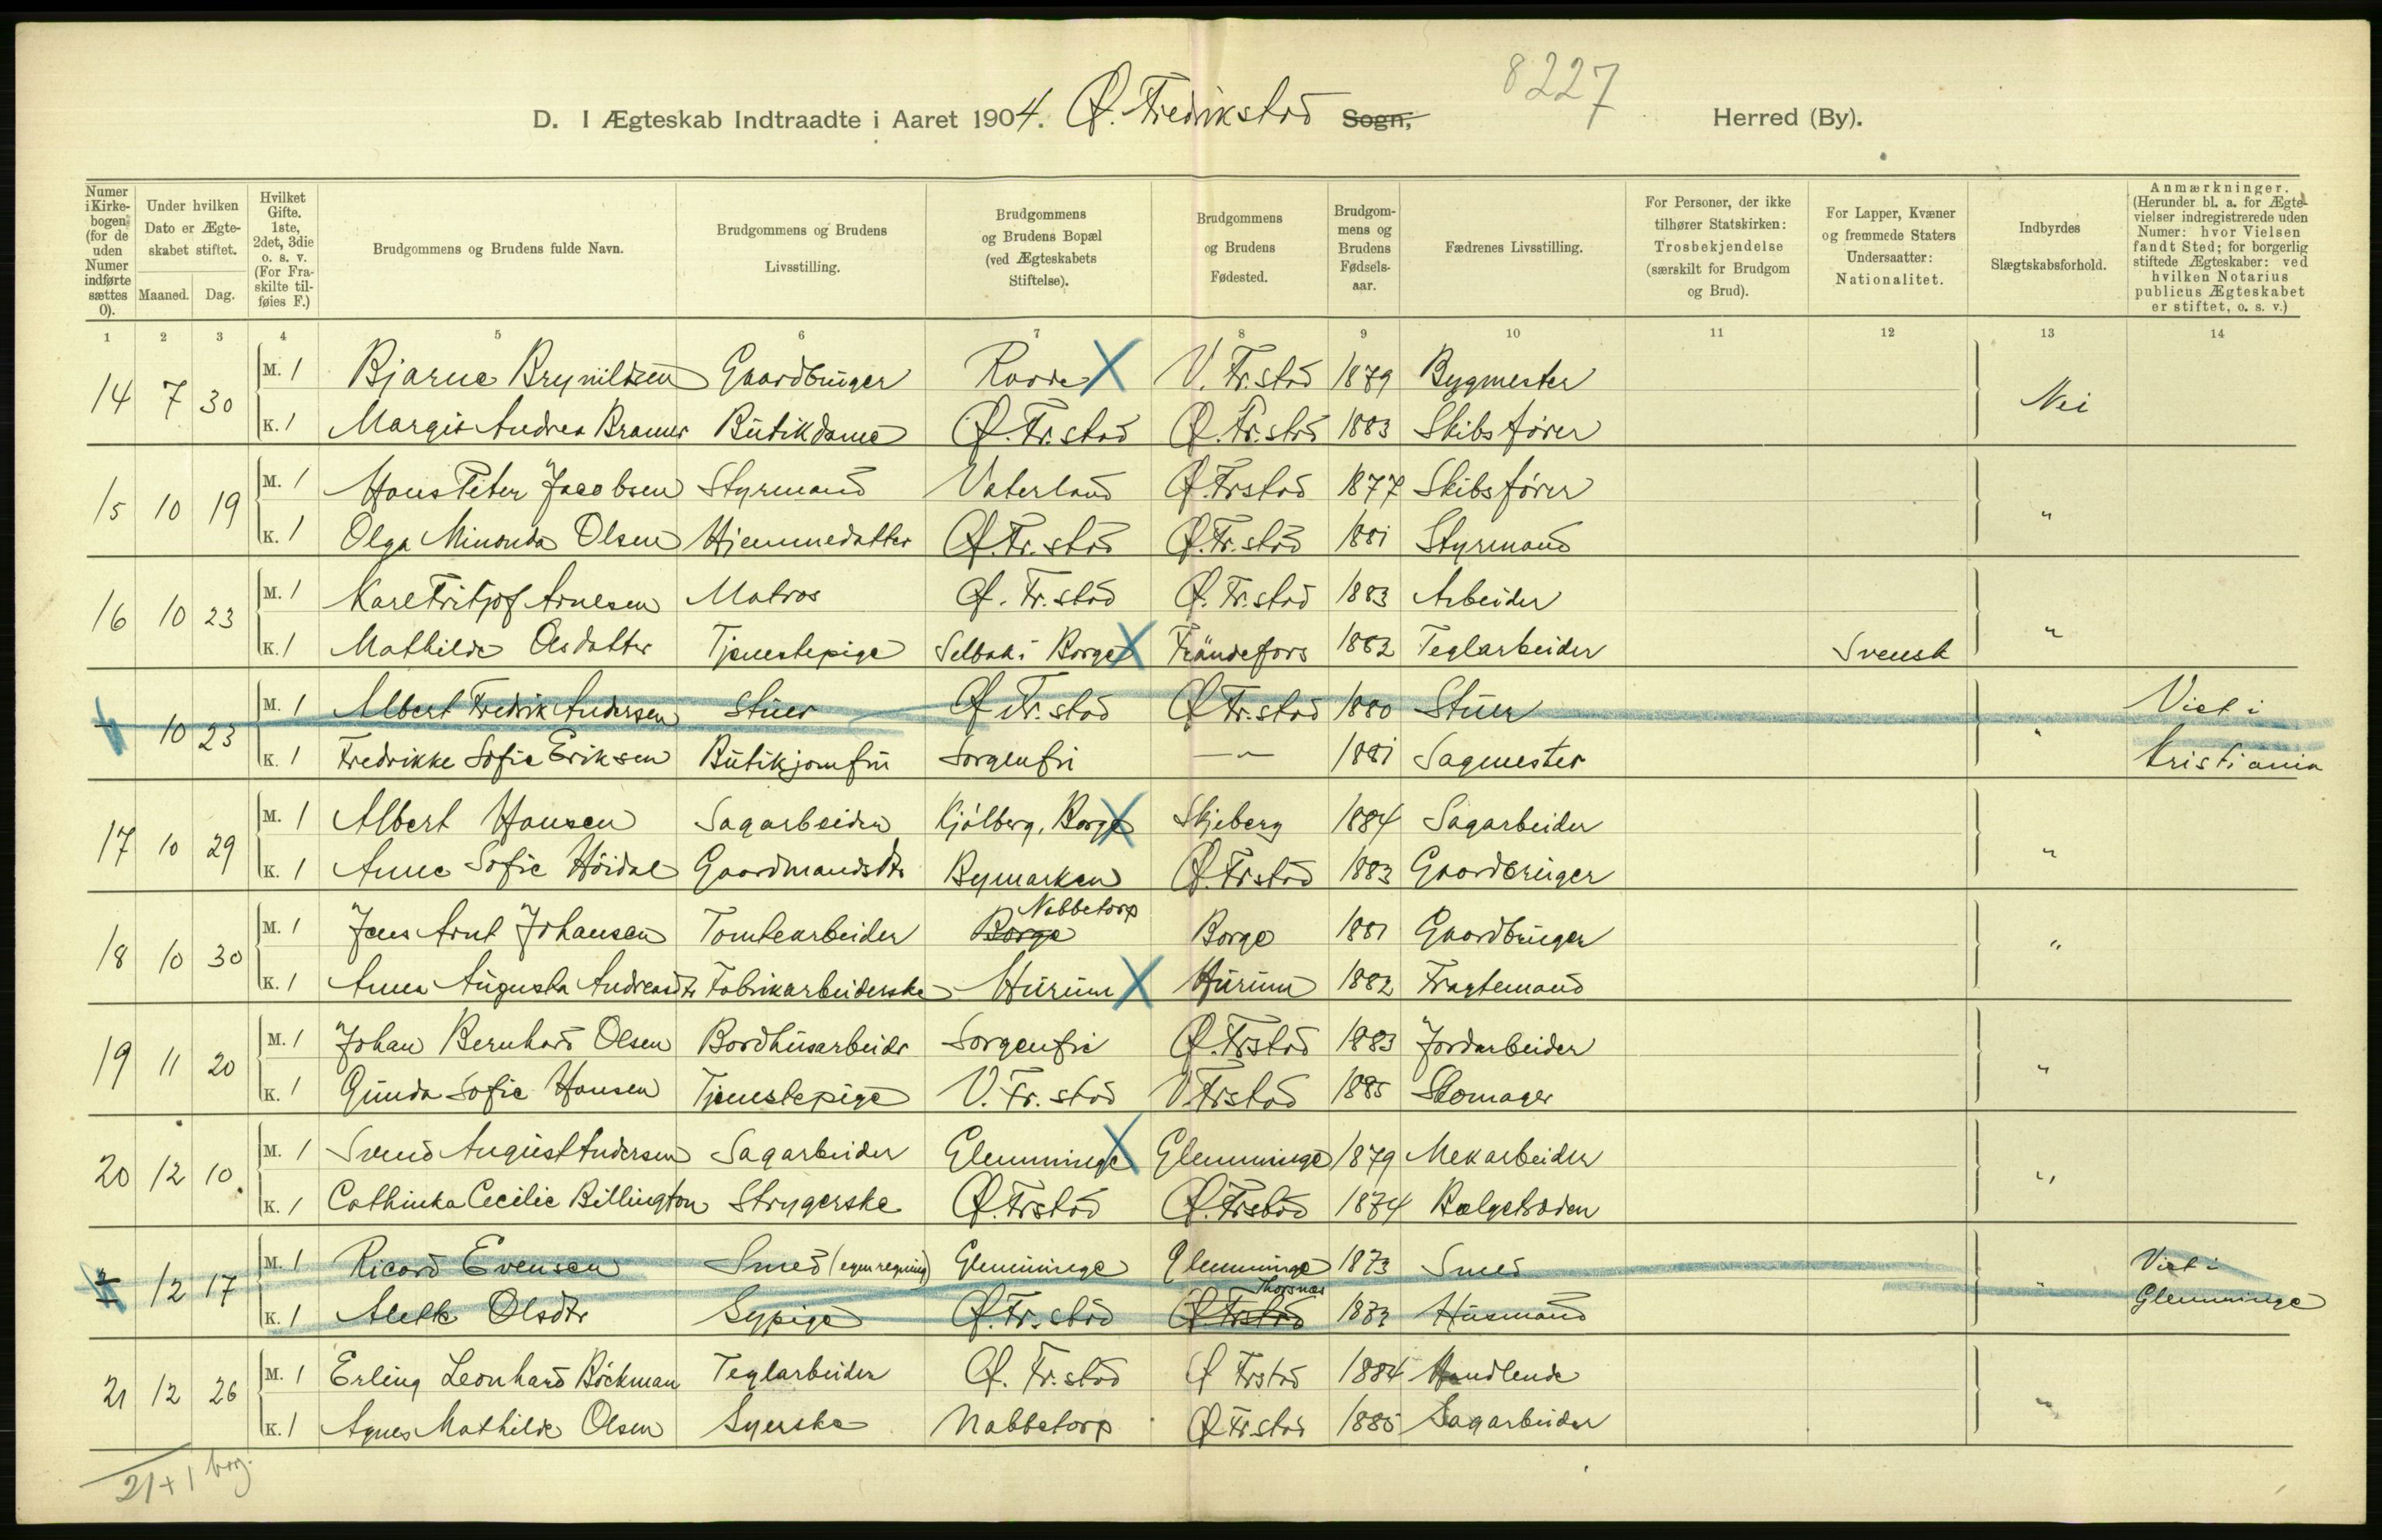 8227
D. I Ægteskab Indtraadte i Aaret 1904. Ø. Fredrikstad Sogn, Herred (By).
Numer i Kirkebogen (for de uden Numer indførte sættes 0).
Under hvilken Dato er Ægteskabet stiftet.
Maaned. Dag.
Hvilket Gifte. 1ste, 2det, 3die o. s. v. (For Fraskilte tilføies F.)
Brudgommens og Brudens fulde Navn.
Brudgommens og Brudens Livsstilling.
Brudgommens og Brudens Bopæl (ved Ægteskabets Stiftelse).
Brudgommens og Brudens Fødested.
Brudgommens og Brudens Fødselsaar.
Fædrenes Livsstilling.
For Personer, der ikke tilhører Statskirken: Trosbekjendelse (særskilt for Brudgom og Brud).
For Lapper, Kvæner og fremmede Staters Undersaatter: Nationalitet.
Indbyrdes Slægtskabsforhold.
Anmærkninger. (Herunder bl. a. for Ægtevielser indregistrerede uden Numer: hvor Vielsen fandt Sted; for borgerlig stiftede Ægteskaber: ved hvilken Notarius publicus Ægteskabet er stiftet, o. s. v.)
1 2 3 4 5 6 7 8 9 10 11 12 13 14
14 7 30 M. 1 Bjarne Brynildsen Gaardbruger Raade X V. Fr.stad 1879 Bygmester Nei
K. 1 Margit Andrea Butikdame Ø. Fr.stad Ø. Fr.stad 1883 Skibsfører
15 10 19 M. 1 Hans Peter Jacobsen Styrmand Vaterland Ø. Frstad 1877 Skibsfører "
K. 1 Olga Minanda Olsen Hjemmedatter Ø. Fr.stad Ø. Fr.stad 1881 Styrmand
16 10 23 M. 1 Karl Fritjof Arnesen Matros Ø. Fr.stad Ø. Fr.stad 1883 Arbeider "
K. 1 Mathilde Olsdatter Tjenestepige Selbak i Borge X Frändefors 1882 Teglarbeider Svensk
10 23 M. 1 Albert Fredrik Andersen Stuer Ø. Fr.stad Ø. Fr.stad 1880 Stuer " Viet i
K. 1 Fredrikke Sofie Eriksen Butikjomfru Sorgenfri — " — 1881 Sagmester Kristiania
17 10 29 M. 1 Albert Hansen Sagarbeider Kjølberg, Borge X Skjeberg 1884 Sagarbeider "
K. 1 Anne Sofie Høidal Gaardmandsdtr Bymarken Ø. Frstad 1883 Gaardbruger
Nabbetorp
18 10 30 M. 1 Jens Arnt Johansen Tomtearbeider Borge Borge 1881 Gaardbruger "
K. 1 Anna Augusta Andreasdtr Fabrikarbeiderske Hurum X Hurum 1882 Fragtemand
19 11 20 M. 1 Johan Bernhard Olsen Bordhusarbeider Sorgenfri Ø. Frstad 1883 Jordarbeider "
K. 1 Gunda Sofie Hansen Tjenestepige V. Fr. stad V. Frstad 1885 Skomager
20 12 10. M. 1 Svend August Andersen Sagarbeider Glemminge X Glemminge 1879 Mekarbeider "
K. 1 Cathinka Cecilie Billington Strygerske Ø. Frstad Ø. Frstad 1874 Bælgetræder
12 17 M. 1 Ricard Evensen Smed (egen regning) Glemminge Glemminge 1873 Smed " Viet i
Thorsnæs
K. 1 Alette Olsdtr Sypige Ø. Fr. stad Ø. Frstad 1883 Husmand Glemminge
21 12 26 M. 1 Erling Leonhard Böckman Teglarbeider Ø. Fr. stad Ø Frstad 1884 Handlende "
K. 1 Agnes Mathilde Olsen Syerske Nabbetorp Ø Fr.stad 1885 Sagarbeider
21 + 1 borg.